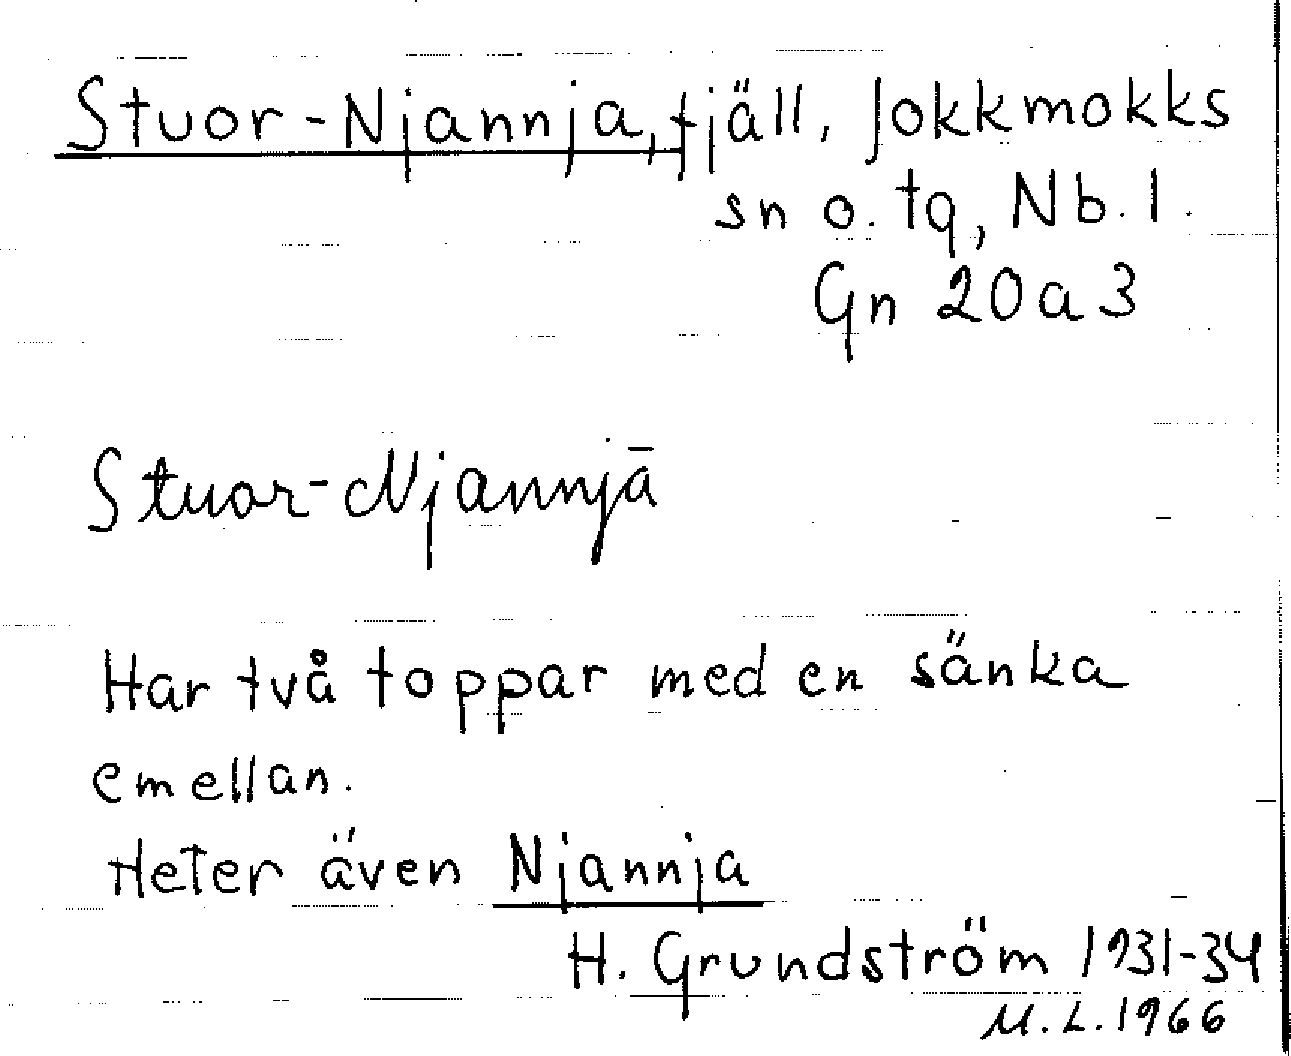 Stuor-Njannja, fjäll, Jokkmokks
sn o. tg, Nb. l.
Gn 20a3
Stuor-Njannjā
Har två toppar med en sänka
emellan.
Heter även Njannja
H. Grundström 1931-34
M.L. 1966